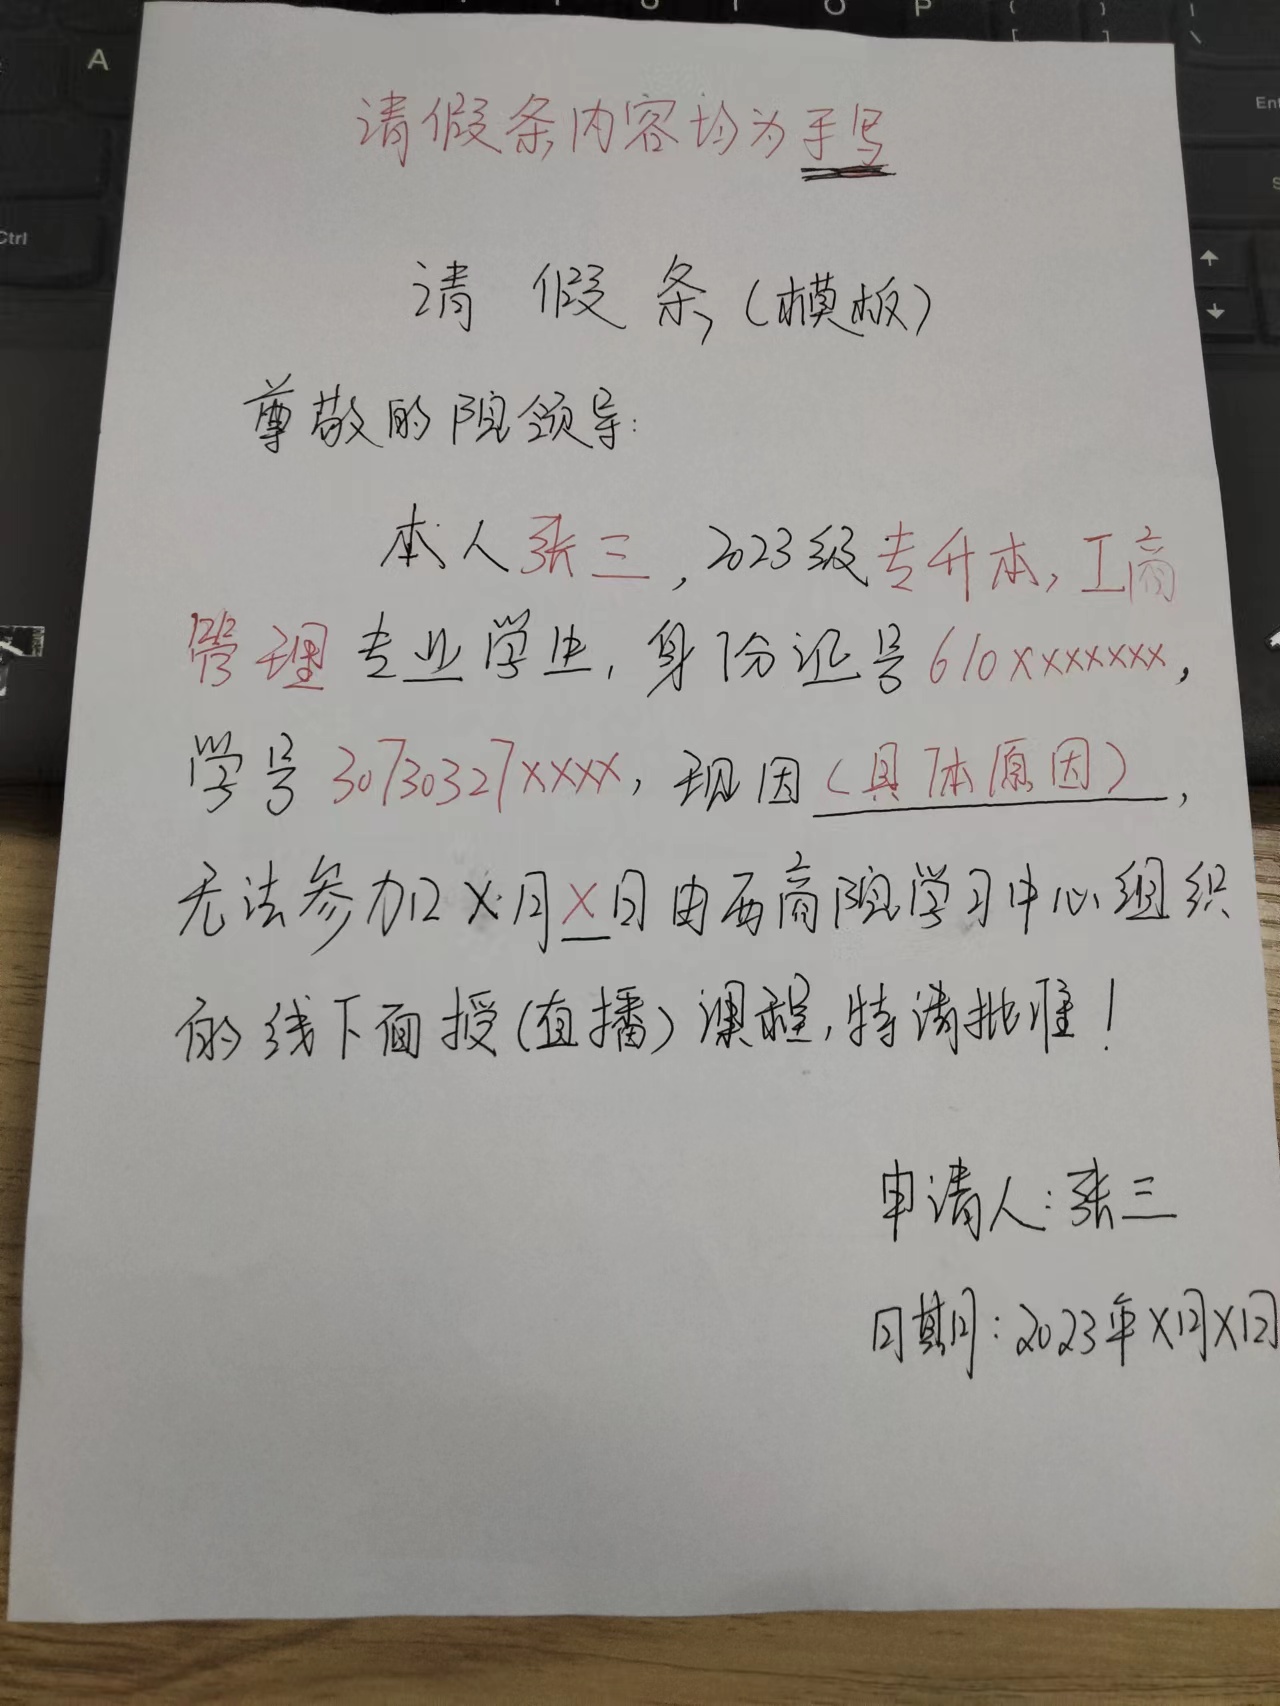 A
T
Y
U
I
O
P
Ctrl
Ent
请假条内容均为手写
请 假 条(模板)
尊敬的院领导:
本人张三,2023级专升本,工商
管理专业学生,身份证号610xxxxxxxx,
学号30730327xxxx,现因(具体原因),
无法参加X月X日由西商院学习中心组织
的线下面授(直播)课程,特请批准!
申请人:张三
日期:2023年X月X日